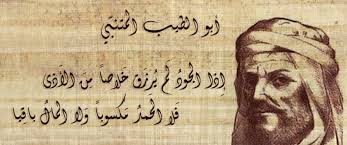 أبو الطيب المتنبّي
إذا الجودُ لم يُرزَق خلاصاً مِنَ الأذى
فَلا الحمدُ مَكسوباً وَلا المالُ باقِيا